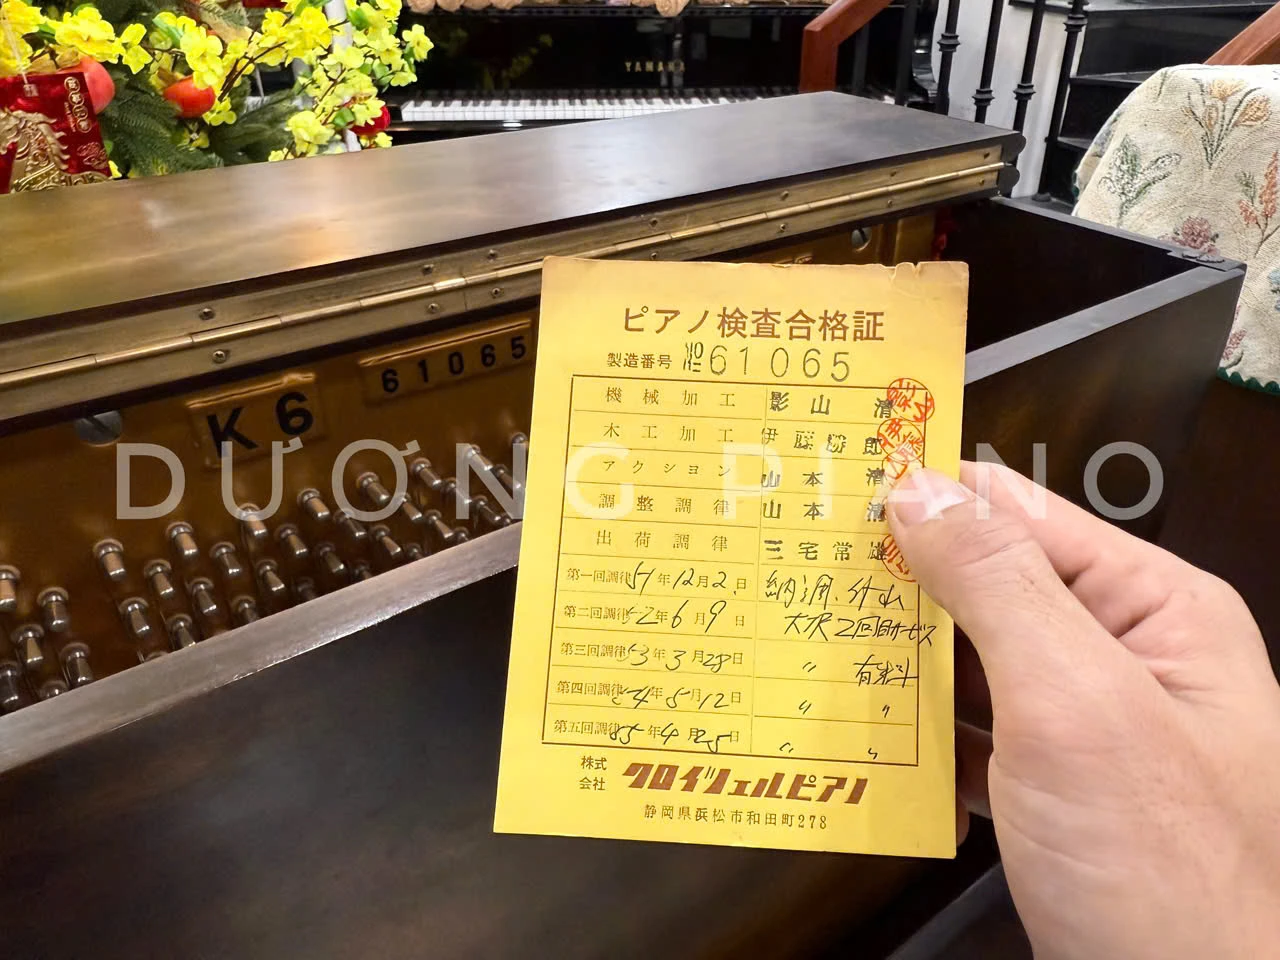 YAMAHA
K6
61065
ピアノ検査合格証
製造番号 №61065
機械加工 影山 清
木工加工 伊藤勝郎
アクション 山本 清
調整調律 山本 清
出荷調律 三宅常雄
第一回調律 51年12月2日 納調.
第二回調律 52年6月9日 大沢2回目サービス
第三回調律 53年3月28日 〃 有料
第四回調律 54年5月12日 〃 〃
第五回調律 55年4月25日 〃 〃
株式会社 クロイツェルピアノ
静岡県浜松市和田町278
DƯƠNG PIANO